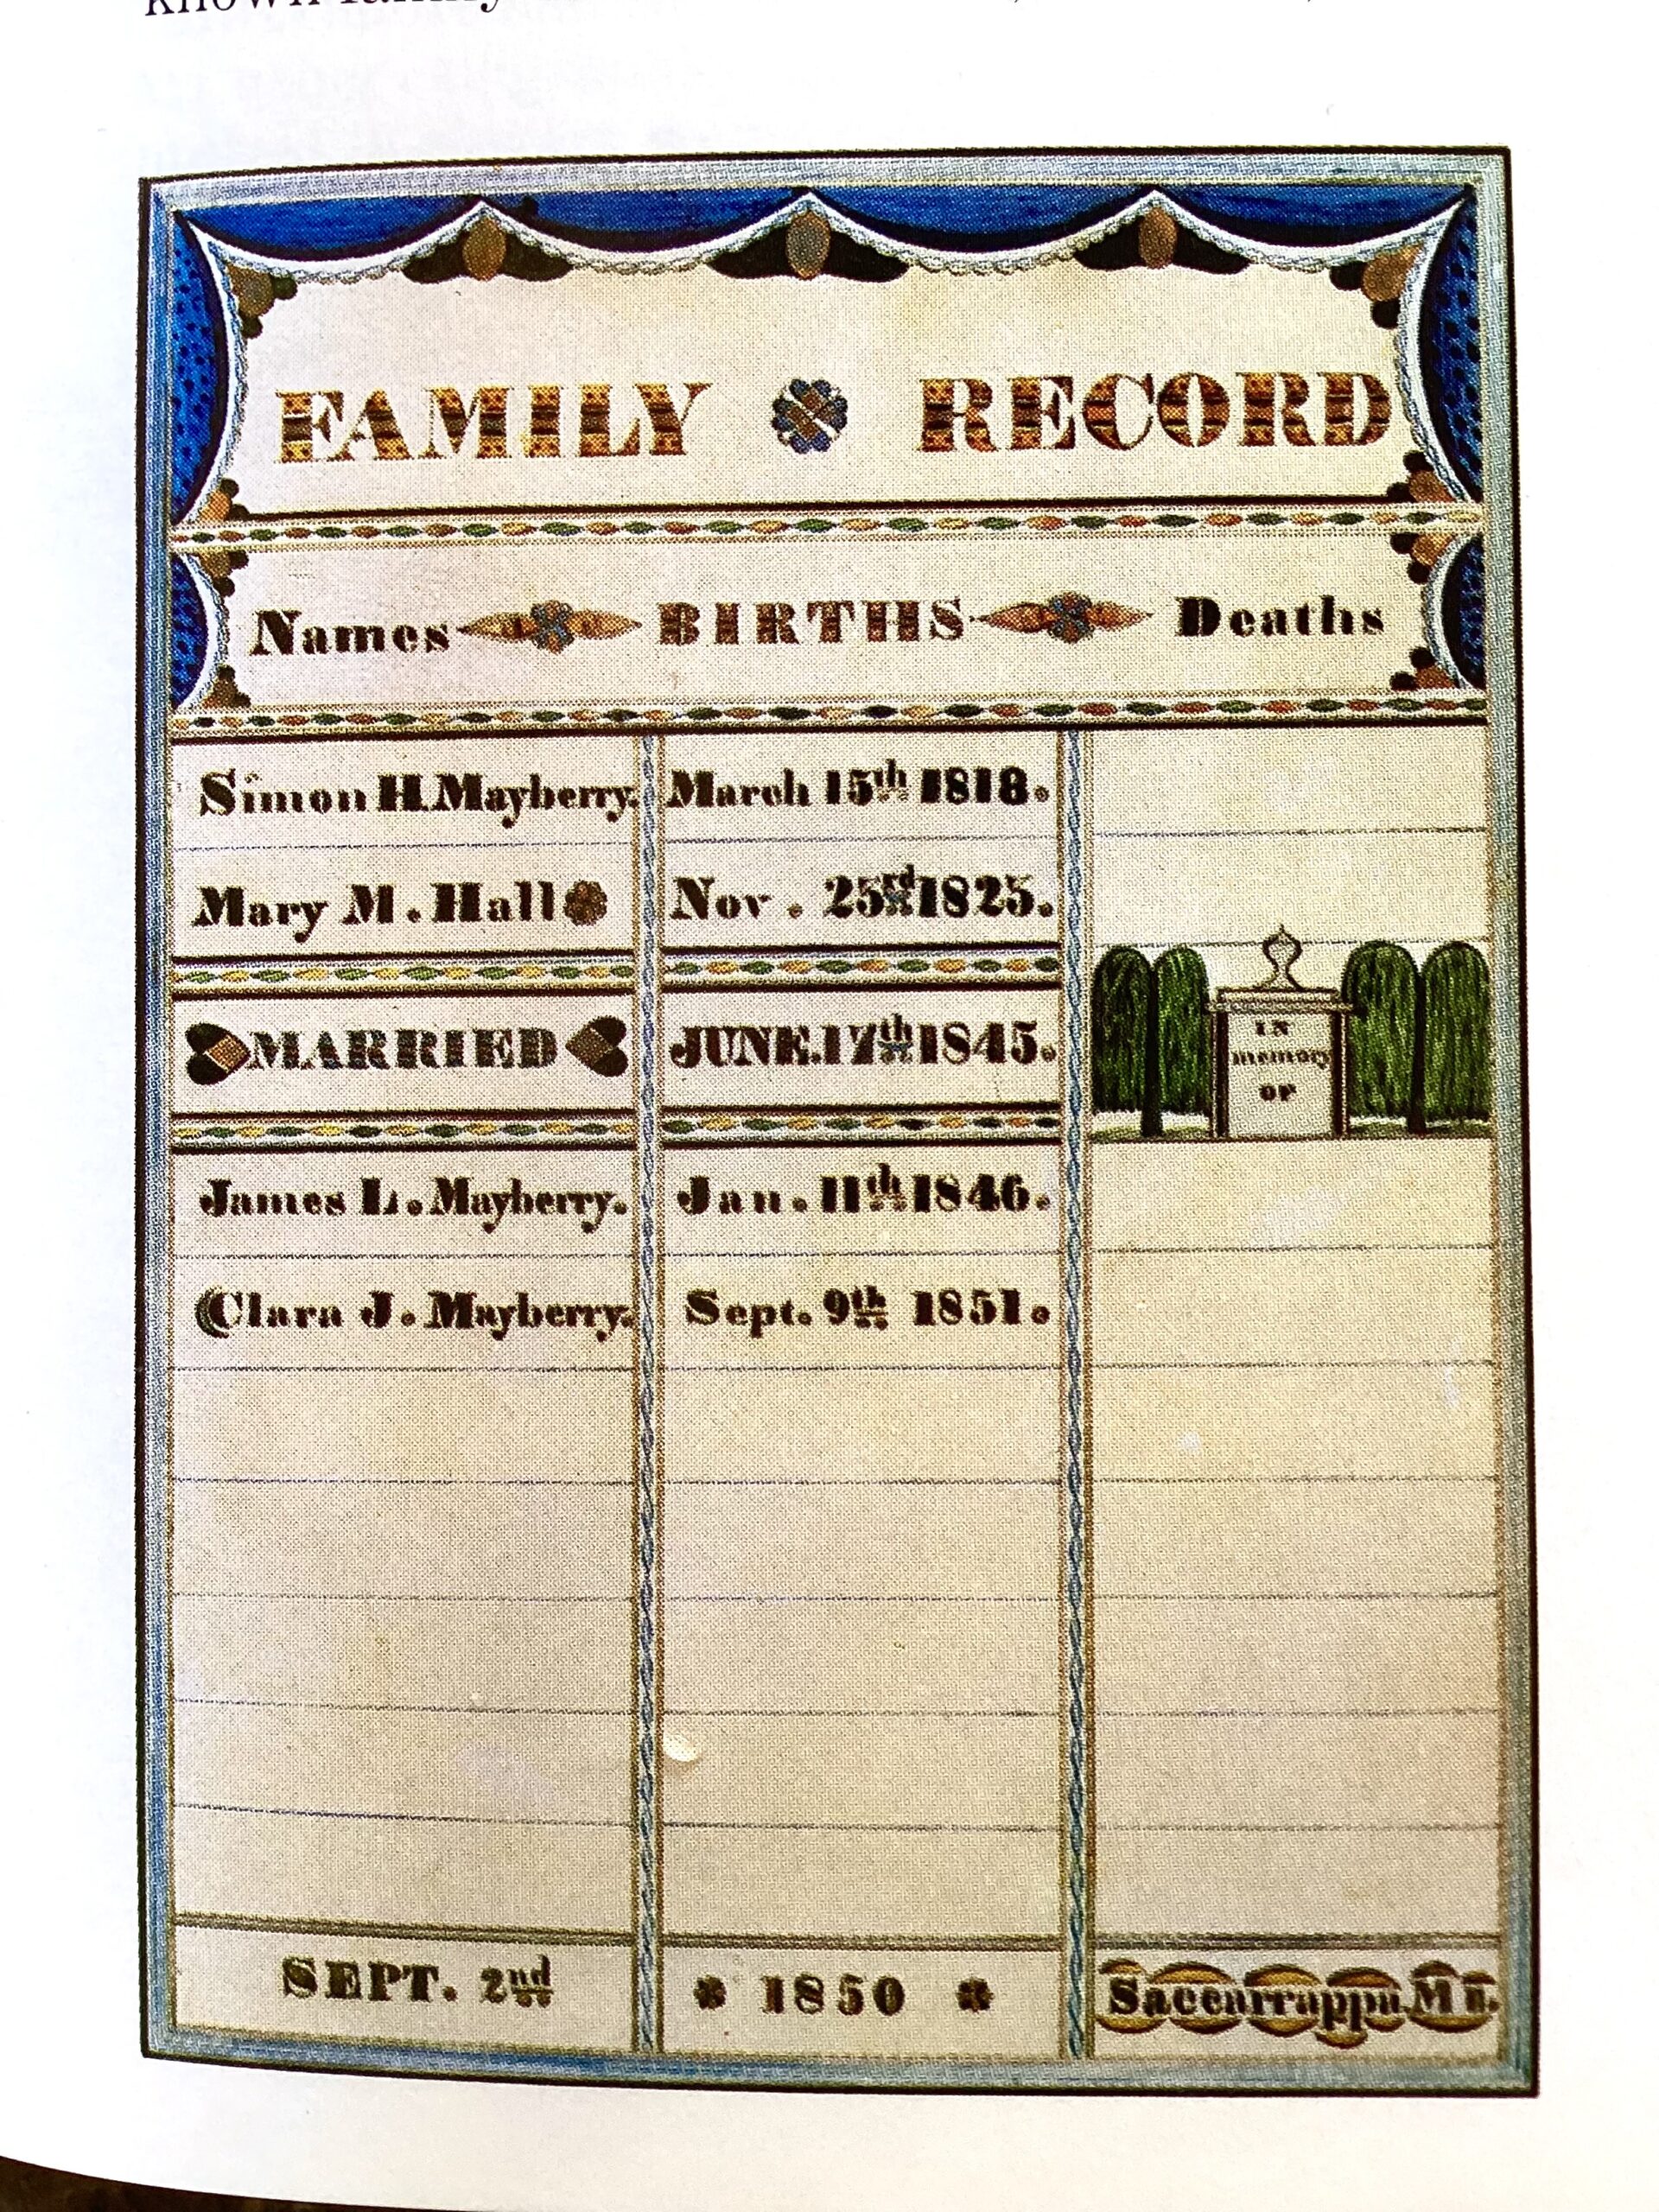 known family
FAMILY RECORD
Names BIRTHS Deaths
Simon H. Mayberry. March 15th 1818.
Mary M. Hall Nov. 25rd 1825.
MARRIED JUNE. 17th 1845.
IN
memory
OF
James L. Mayberry. Jan. 11th 1846.
Clara J. Mayberry. Sept. 9th 1851.
SEPT. 2nd 1850 Saccarrappa. Me.